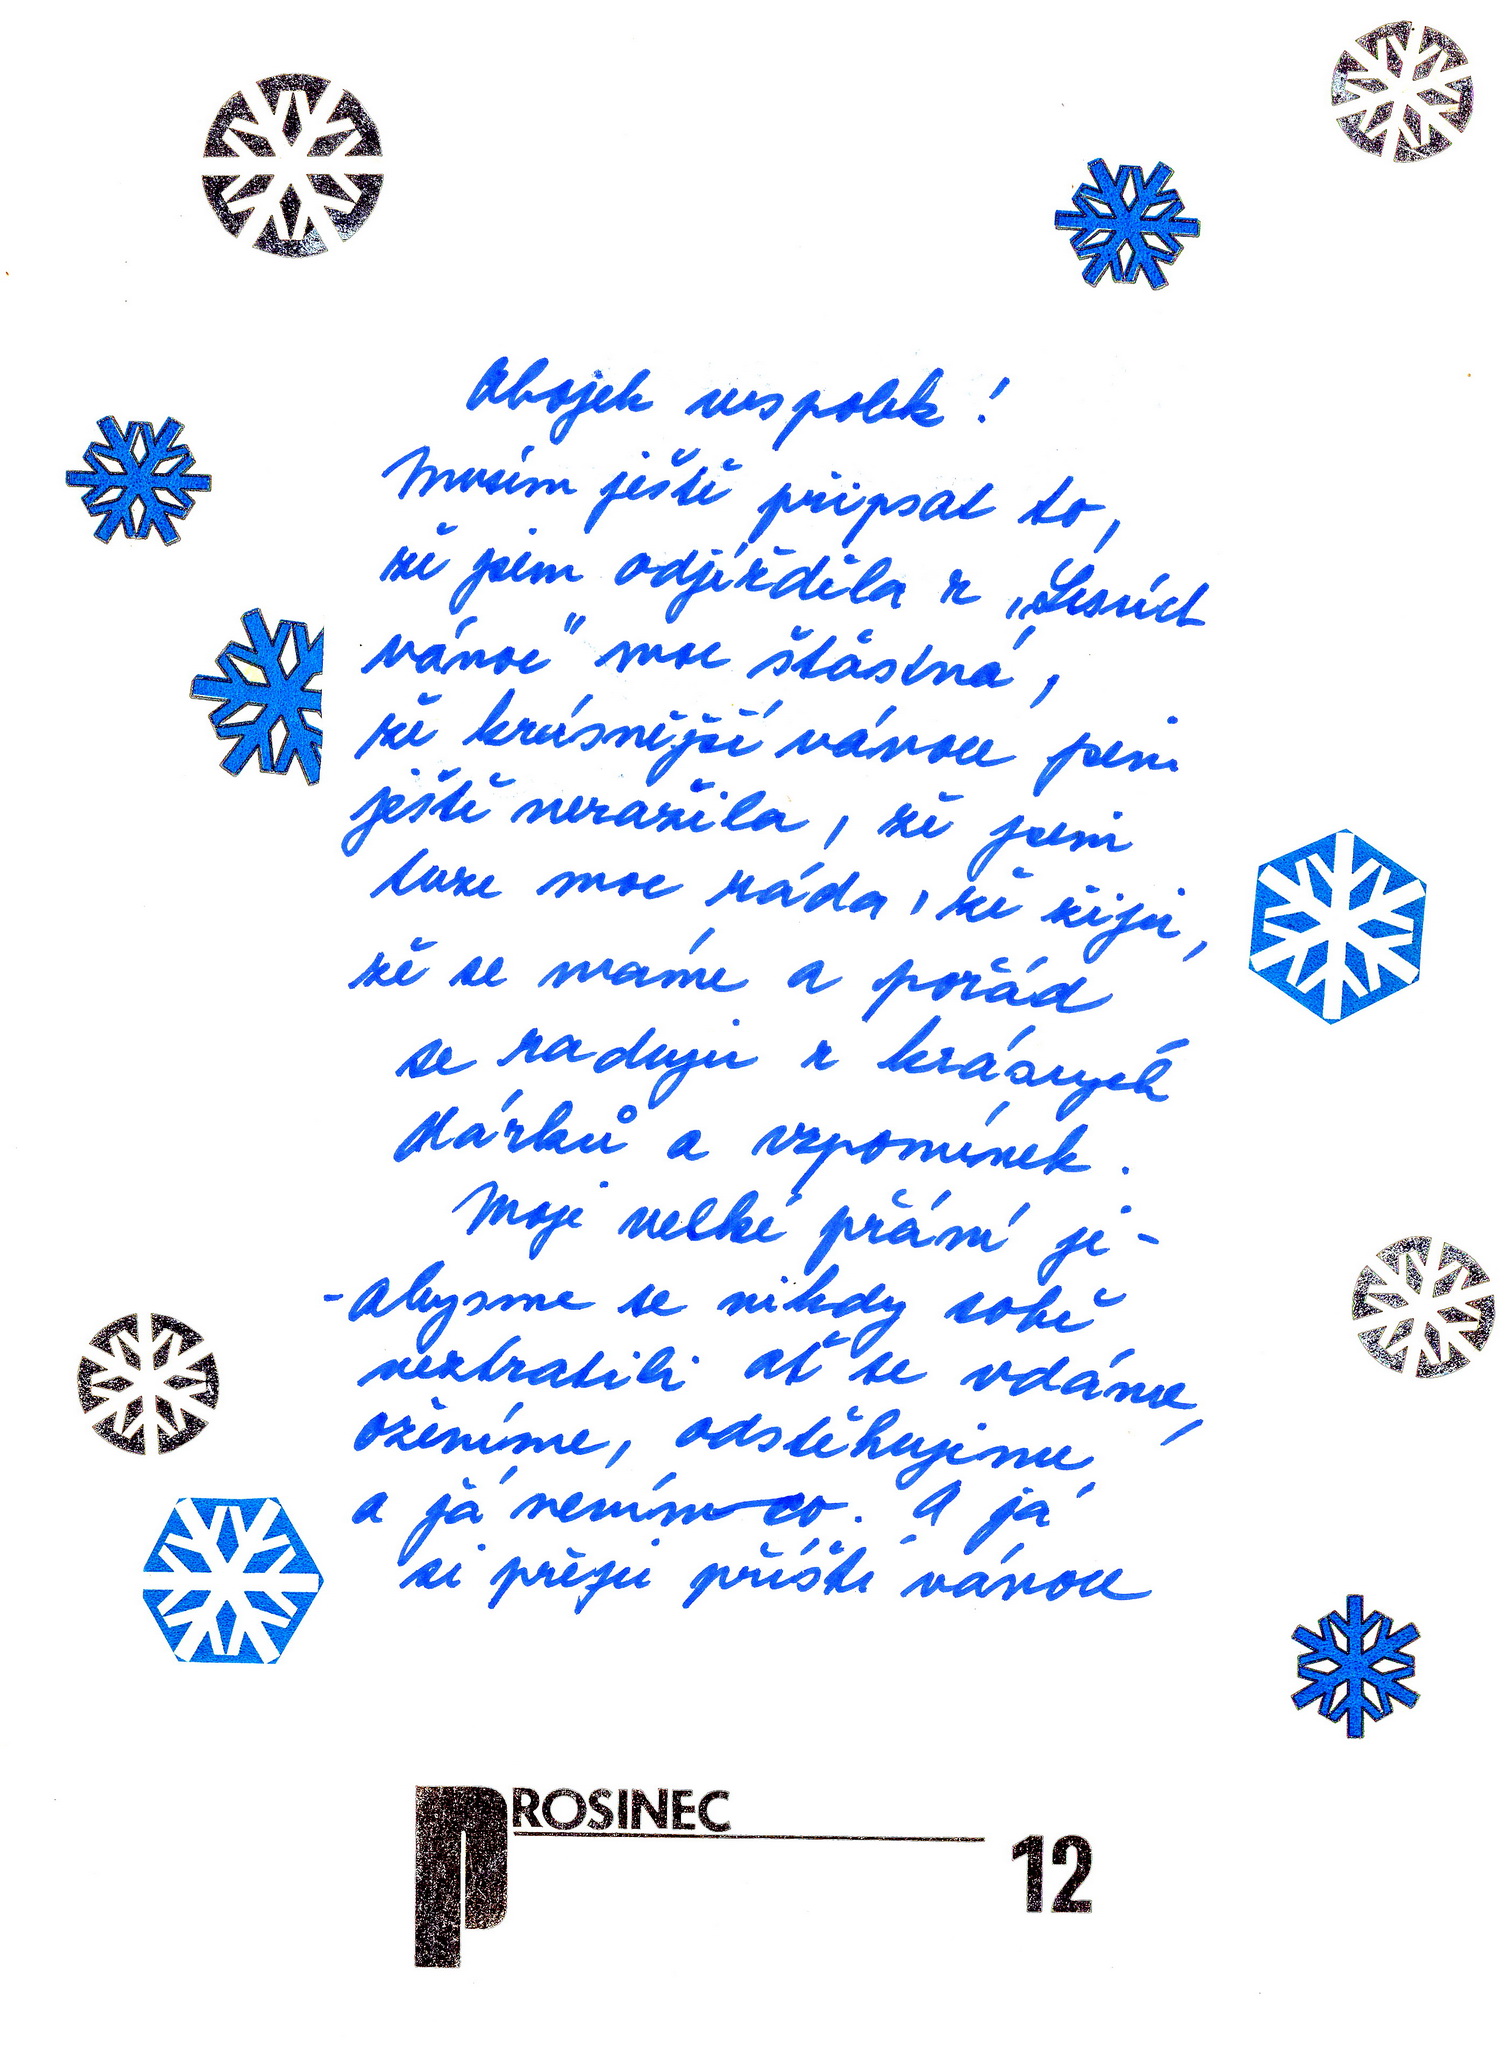 Ahojek vespolek!
Musím ještě připsat to,
že jsem odjížděla z „Lesních
vánoc" moc šťastná,
že krásnější vánoce jsem
ještě nezažila, že jsem
tuze moc ráda, že žiju,
že se máme a pořád
se raduju z krásných
dárků a vzpomínek.
Moje velké přání je -
- abysme se nikdy sobě
neztratili ať se vdáme,
oženíme, odstěhujeme
a já nevím co. A já
si přeju příští vánoce
PROSINEC 12